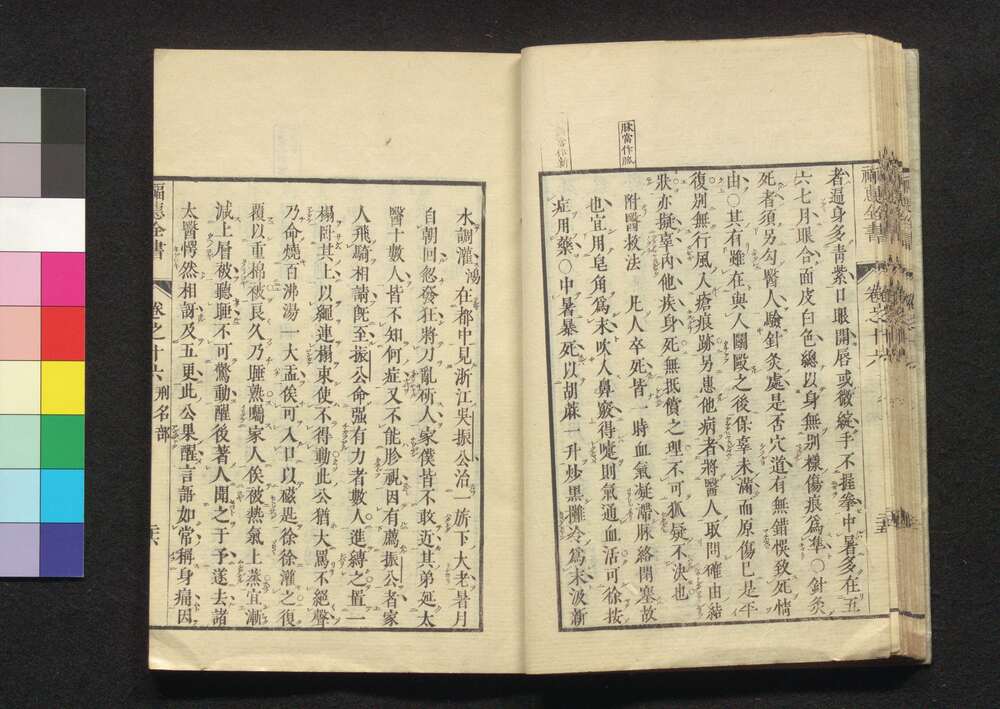 脉當作脇
者遍身多青紫口眼開唇或微綻手不握拳中暑多在五
六七月眼合面皮白色總以身無别樣傷痕爲準〇針灸
死者須另勾醫人驗針灸處是否穴道有無錯悞致死情
由〇其有雖在與人鬭毆之後保辜未滿而原傷已是平
復别無行風人瘡痕跡另患他病者將醫人取問確由結
狀亦擬辜内他疾身死無抵償之理不可狐疑不決也
附醫救法　凡人卒死皆一時血氣凝滯脉絡閉塞故
也宜用皂角爲末吹人鼻竅得嚏則氣通血活可徐按
症用藥〇中暑暴死以胡蔴一升炒黒攤冷爲末汲新
福惠全書
卷之十六
三五
水調灌、鴻在都中見浙江吳振公治一旂下大老暑月
自朝回忽發狂將刀亂斫人家僕皆不敢近其弟延太
醫十數人皆不知何症又不能胗視因有薦振公者家
人飛騎相請旣至振公命强有力者數人進縛之置一
榻𦥑其上以繩連榻束使不得動此公猶大罵不絕聲
乃命燒百沸湯一大盂俟可入口以磁匙徐徐灌之復
覆以重棉被良久乃睡熟囑家人俟被熱氣上蒸宜漸
減上層被聽睡不可驚動醒後著人聞之于予遂去諸
太醫愕然相訝及五更此公果醒言語如常稱身痛因
福惠全書
卷之十六
刑名部
三六